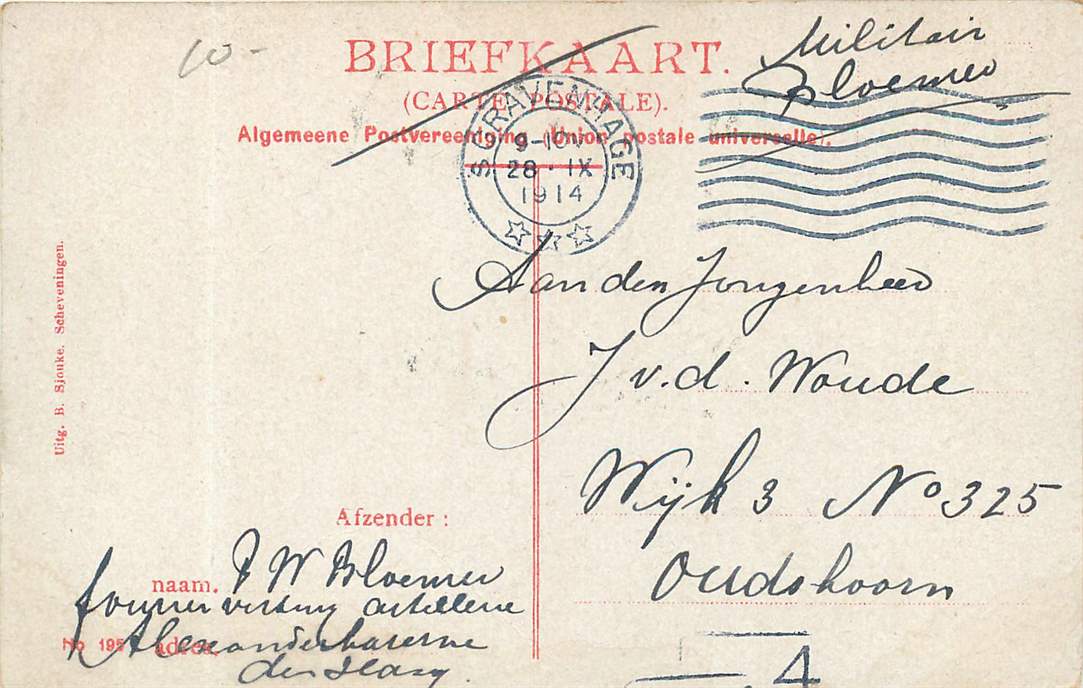 10-
Militair
Bloemer
BRIEFKAART.
(CARTE POSTALE).
Algemeene Postvereeniging (Union postale universelle).
'S GRAVENHAGE
9-10V
28·IX
1914
Aan den Jongenheer
J v.d. Woude
Wijk 3 No 325
Oudshoorn
Uitg. B. Sjouke. Scheveningen.
Afzender:
naam. P W Bloemer
fourier vesting artillerie
No 195 adres. Alexanderkazerne
den Haag.
4